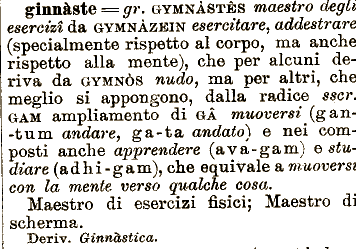 ginnàste = gr. GYMNÀSTÊS maestro degli
esercizî da GYMNÀZEIN esercitare, addestrare
(specialmente rispetto al corpo, ma anche
rispetto alla mente), che per alcuni de-
riva da GYMNÒS nudo, ma per altri, che
meglio si appongono, dalla radice sscr.
GAM ampliamento di GÂ muoversi (gan-
-tum andare, ga-ta andato) e nei com-
posti anche apprendere (ava-gam) e stu-
diare (adhi-gam), che equivale a muoversi
con la mente verso qualche cosa.
Maestro di esercizi fisici; Maestro di
scherma.
Deriv. Ginnàstica.